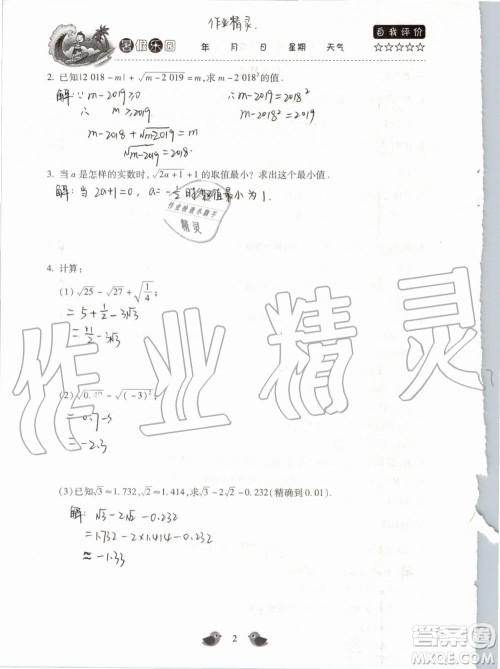 作业精灵
暑假乐园 年 月 日 星期 天气 自我评价
☆☆☆☆☆
2. 已知|2 018-m|+√(m-2 019)=m,求 m-2 018²的值.
解:∵m-2019≥0 ∴m-2019=2018²
∴ m≥2019 ∴m-2018²=2019
m-2018+√(m-2019)=m
√(m-2019)=2018
3. 当 a 是怎样的实数时,√(2a+1)+1 的取值最小?求出这个最小值.
解:当 2a+1=0, a=-1/2 时 取值最小为1.
作业检查小助手
精灵
4. 计算:
(1)√25-√27+√(1/4);
=5+1/2-3√3
=11/2-3√3
作业精灵
(2) -√((-3)²)
=0.7-3
=-2.3
(3)已知√3≈1.732,√2≈1.414,求√3-2√2-0.232(精确到 0.01).
解: √3-2√2-0.232
=1.732-2×1.414-0.232
≈-1.33
2
答案圈
MXQE.COM